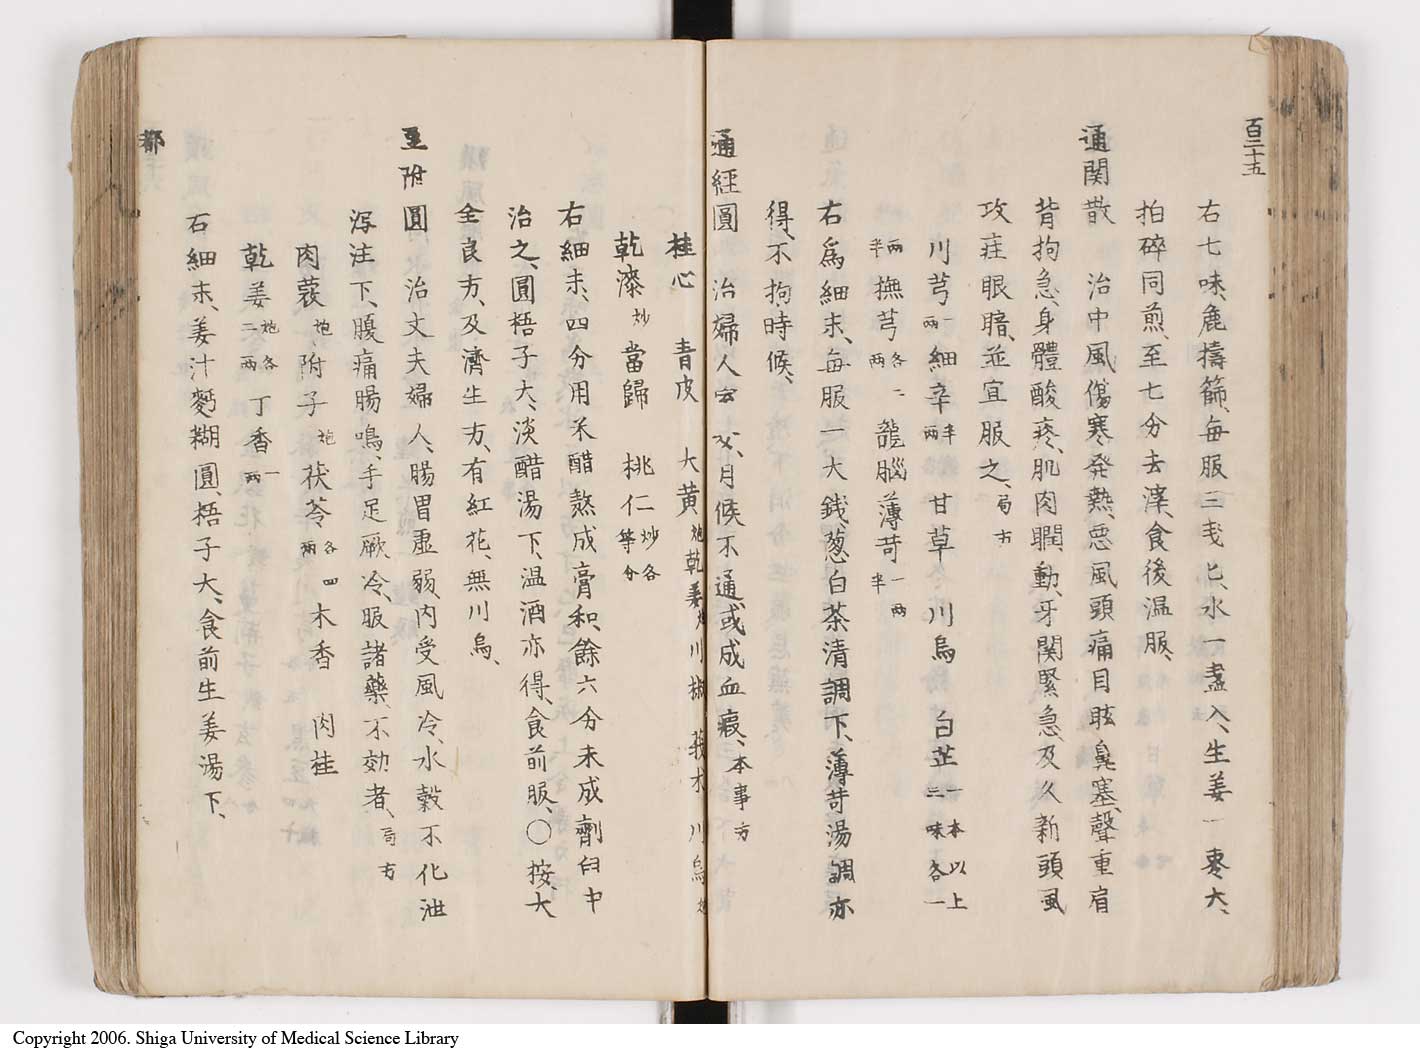 百二十五
右七味、麁擣篩、毎服三戋匕、水一盞入、生姜一棗大、
拍碎同煎、至七分去滓、食後温服、
通関散　治中風傷寒発熱、悪風頭痛目眩鼻塞、聲重肩
背拘急、身體酸疼、肌肉瞤動、牙関緊急、及久新頭風
攻疰眼暗、並宜服之、局方
川芎一兩　細辛半兩　甘草　川烏　白芷一本以上三味各一
兩半　撫芎各二兩　龍腦薄苛一兩半
右爲細末、毎服一大銭、葱白茶清調下、薄苛湯調亦
得、不拘時候、
通經圓　治婦人室女、月候不通、或成血瘕、本事方
桂心　青皮　大黄炮　乾姜炮　川椒　莪朮　川烏炮
乾漆炒　當歸　桃仁炒各等分
右細末、四分用米醋熬成膏和、餘六分末成劑臼中
治之、圓梧子大、淡醋湯下、温酒亦得、食前服、○按、大
全良方、及濟生方、有紅花、無川烏、
至附圓　治丈夫婦人、腸胃虚弱、内受風冷、水穀不化泄
泻注下、腹痛腸鳴、手足厥冷、服諸藥、不効者、局方
肉蔲炮　附子炮　茯苓各四兩　木香　肉桂
乾姜炮各二兩　丁香一兩
右細末、姜汁麪糊圓、梧子大、食前生姜湯下、
都